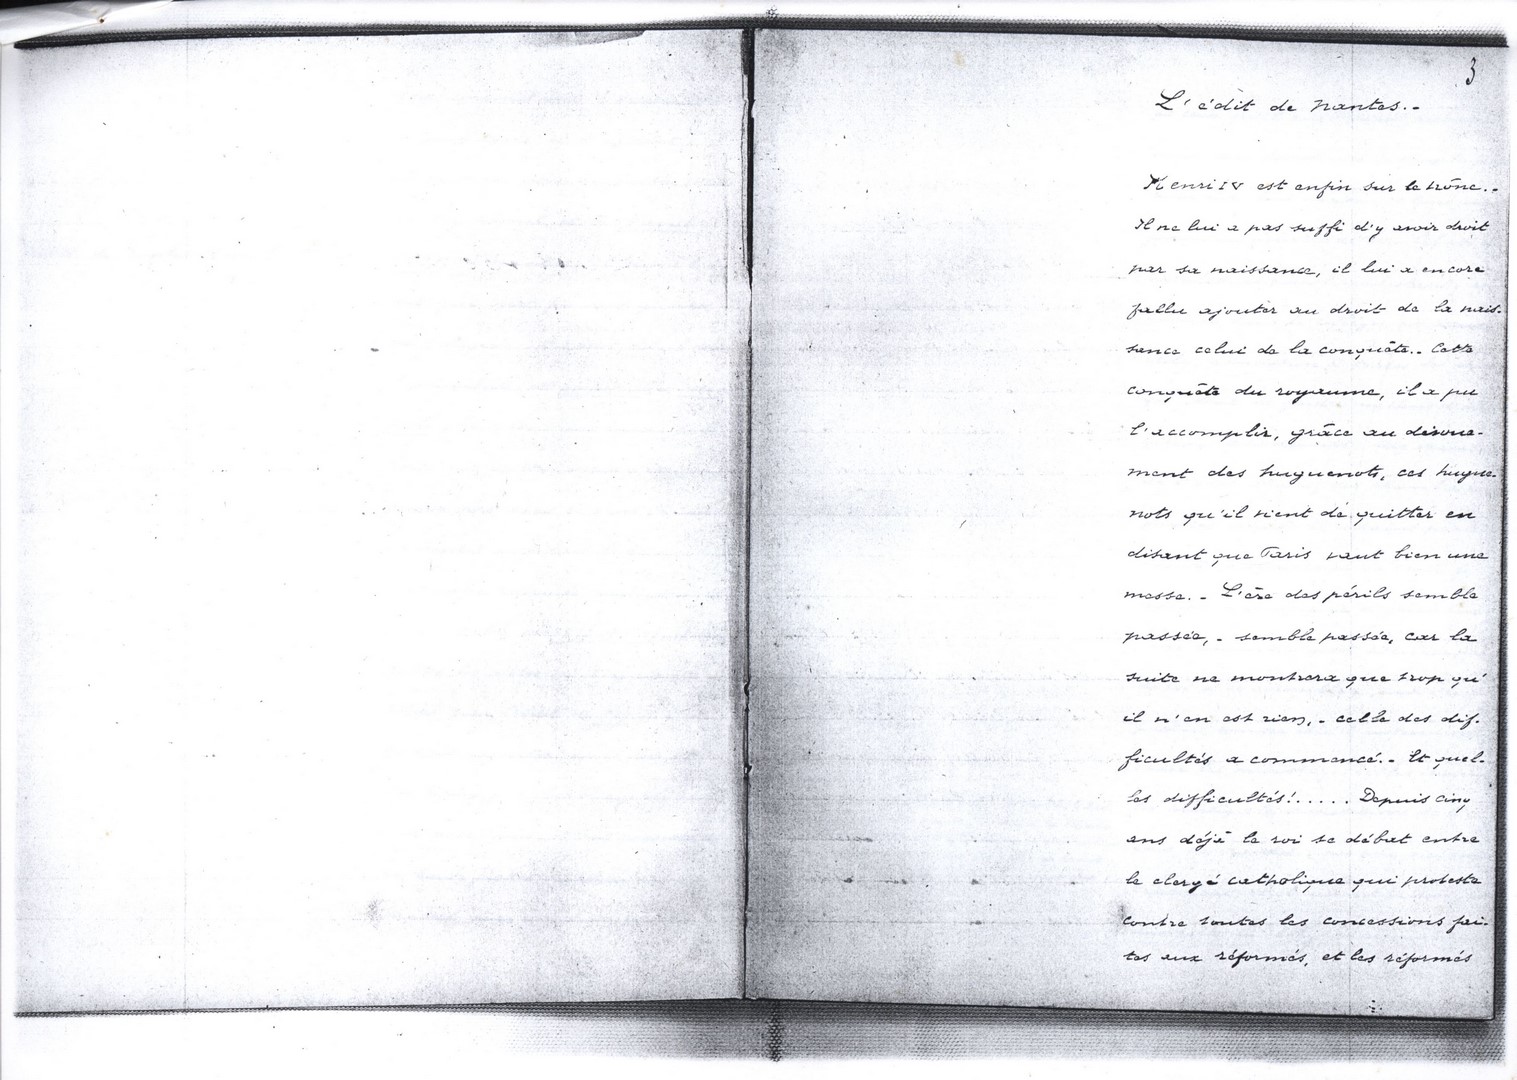 3
L'édit de Nantes.-
Henri IV est enfin sur le trône.-
Il ne lui a pas suffi d'y avoir droit
par sa naissance, il lui a encore
fallu ajouter au droit de la nais-
sance celui de la conquête.- Cette
conquête du royaume, il a pu
l'accomplir, grâce au dévoue-
ment des huguenots, ces hugue-
nots qu'il vient de quitter en
disant que Paris vaut bien une
messe.- L'ère des périls semble
passée,- semble passée, car la
suite ne montrera que trop qu'
il n'en est rien,- celle des dif-
ficultés a commencé.- Et quel-
les difficultés!..... Depuis cinq
ans déjà le roi se débat entre
le clergé catholique qui proteste
contre toutes les concessions fai-
tes aux réformés, et les réformés